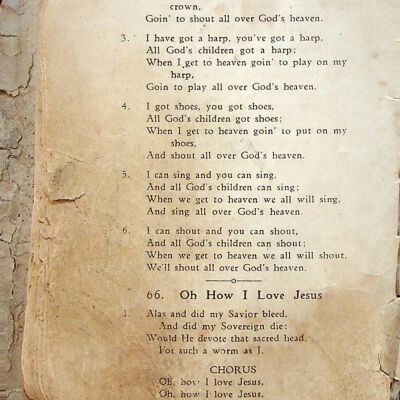 crown,
Goin' to shout all over God's heaven.
3. I have got a harp, you've got a harp,
All God's children got a harp;
When I get to heaven goin' to play on my
harp,
Goin to play all over God's heaven.
4. I got shoes, you got shoes,
All God's children got shoes;
When I get to heaven goin' to put on my
shoes,
And shout all over God's heaven.
5. I can sing and you can sing,
And all God's children can sing;
When we get to heaven we all will sing,
And sing all over God's heaven.
6. I can shout and you can shout,
And all God's children can shout;
When we get to heaven we all will shout,
We'll shout all over God's heaven.
66. Oh How I Love Jesus
1. Alas and did my Savior bleed,
And did my Sovereign die:
Would He devote that sacred head,
For such a worm as I.
CHORUS
Oh, how I love Jesus,
Oh, how I love Jesus,